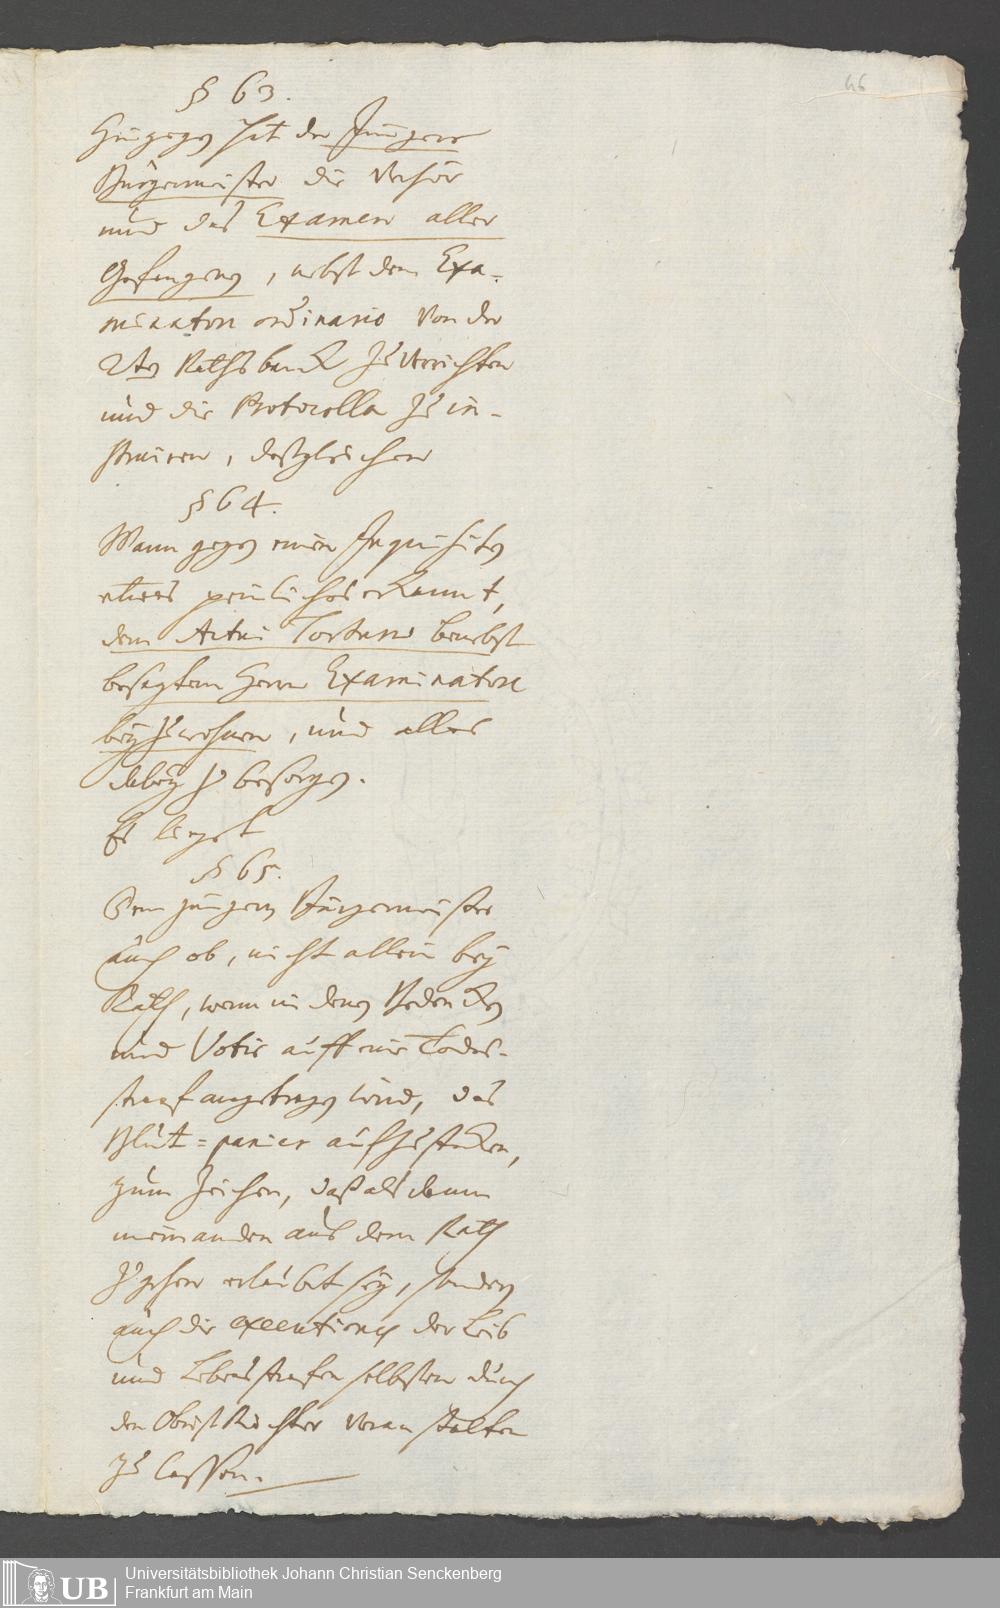 46
§ 63.
Hingegen hat der Jüngere
Bürgermeister die Verhör
und das Examen aller
Gefangenen, nebst dem Exa-
minatori ordinario von der
2ten Rathsbanck zu verrichten
und die Protocolla zu in-
struiren, desgleichen
§ 64.
Wann gegen einen Inquisiten
etwas peinliches erkannt,
dem Actui Torturae benebst
besagtem Herrn Examinatore
beyzuwohnen, und alles
dabey zu besorgen.
Es liegt
§ 65.
Dem jüngern Bürgermeister
auch ob, nicht allein bey
Rath, wenn in denen Bedencken
und Votis auff eine Todes-
straf angetragen wird, das
Blut=panier aufzustecken,
zum Zeichen, daß alsdann
niemanden aus dem Rath
zu gehen erlaubt sey, sondern
auch die executiones der Leib
und Lebensstrafen selbsten durch
den Obrist Richter veranstalten
zu lassen.
UB
Universitätsbibliothek Johann Christian Senckenberg
Frankfurt am Main